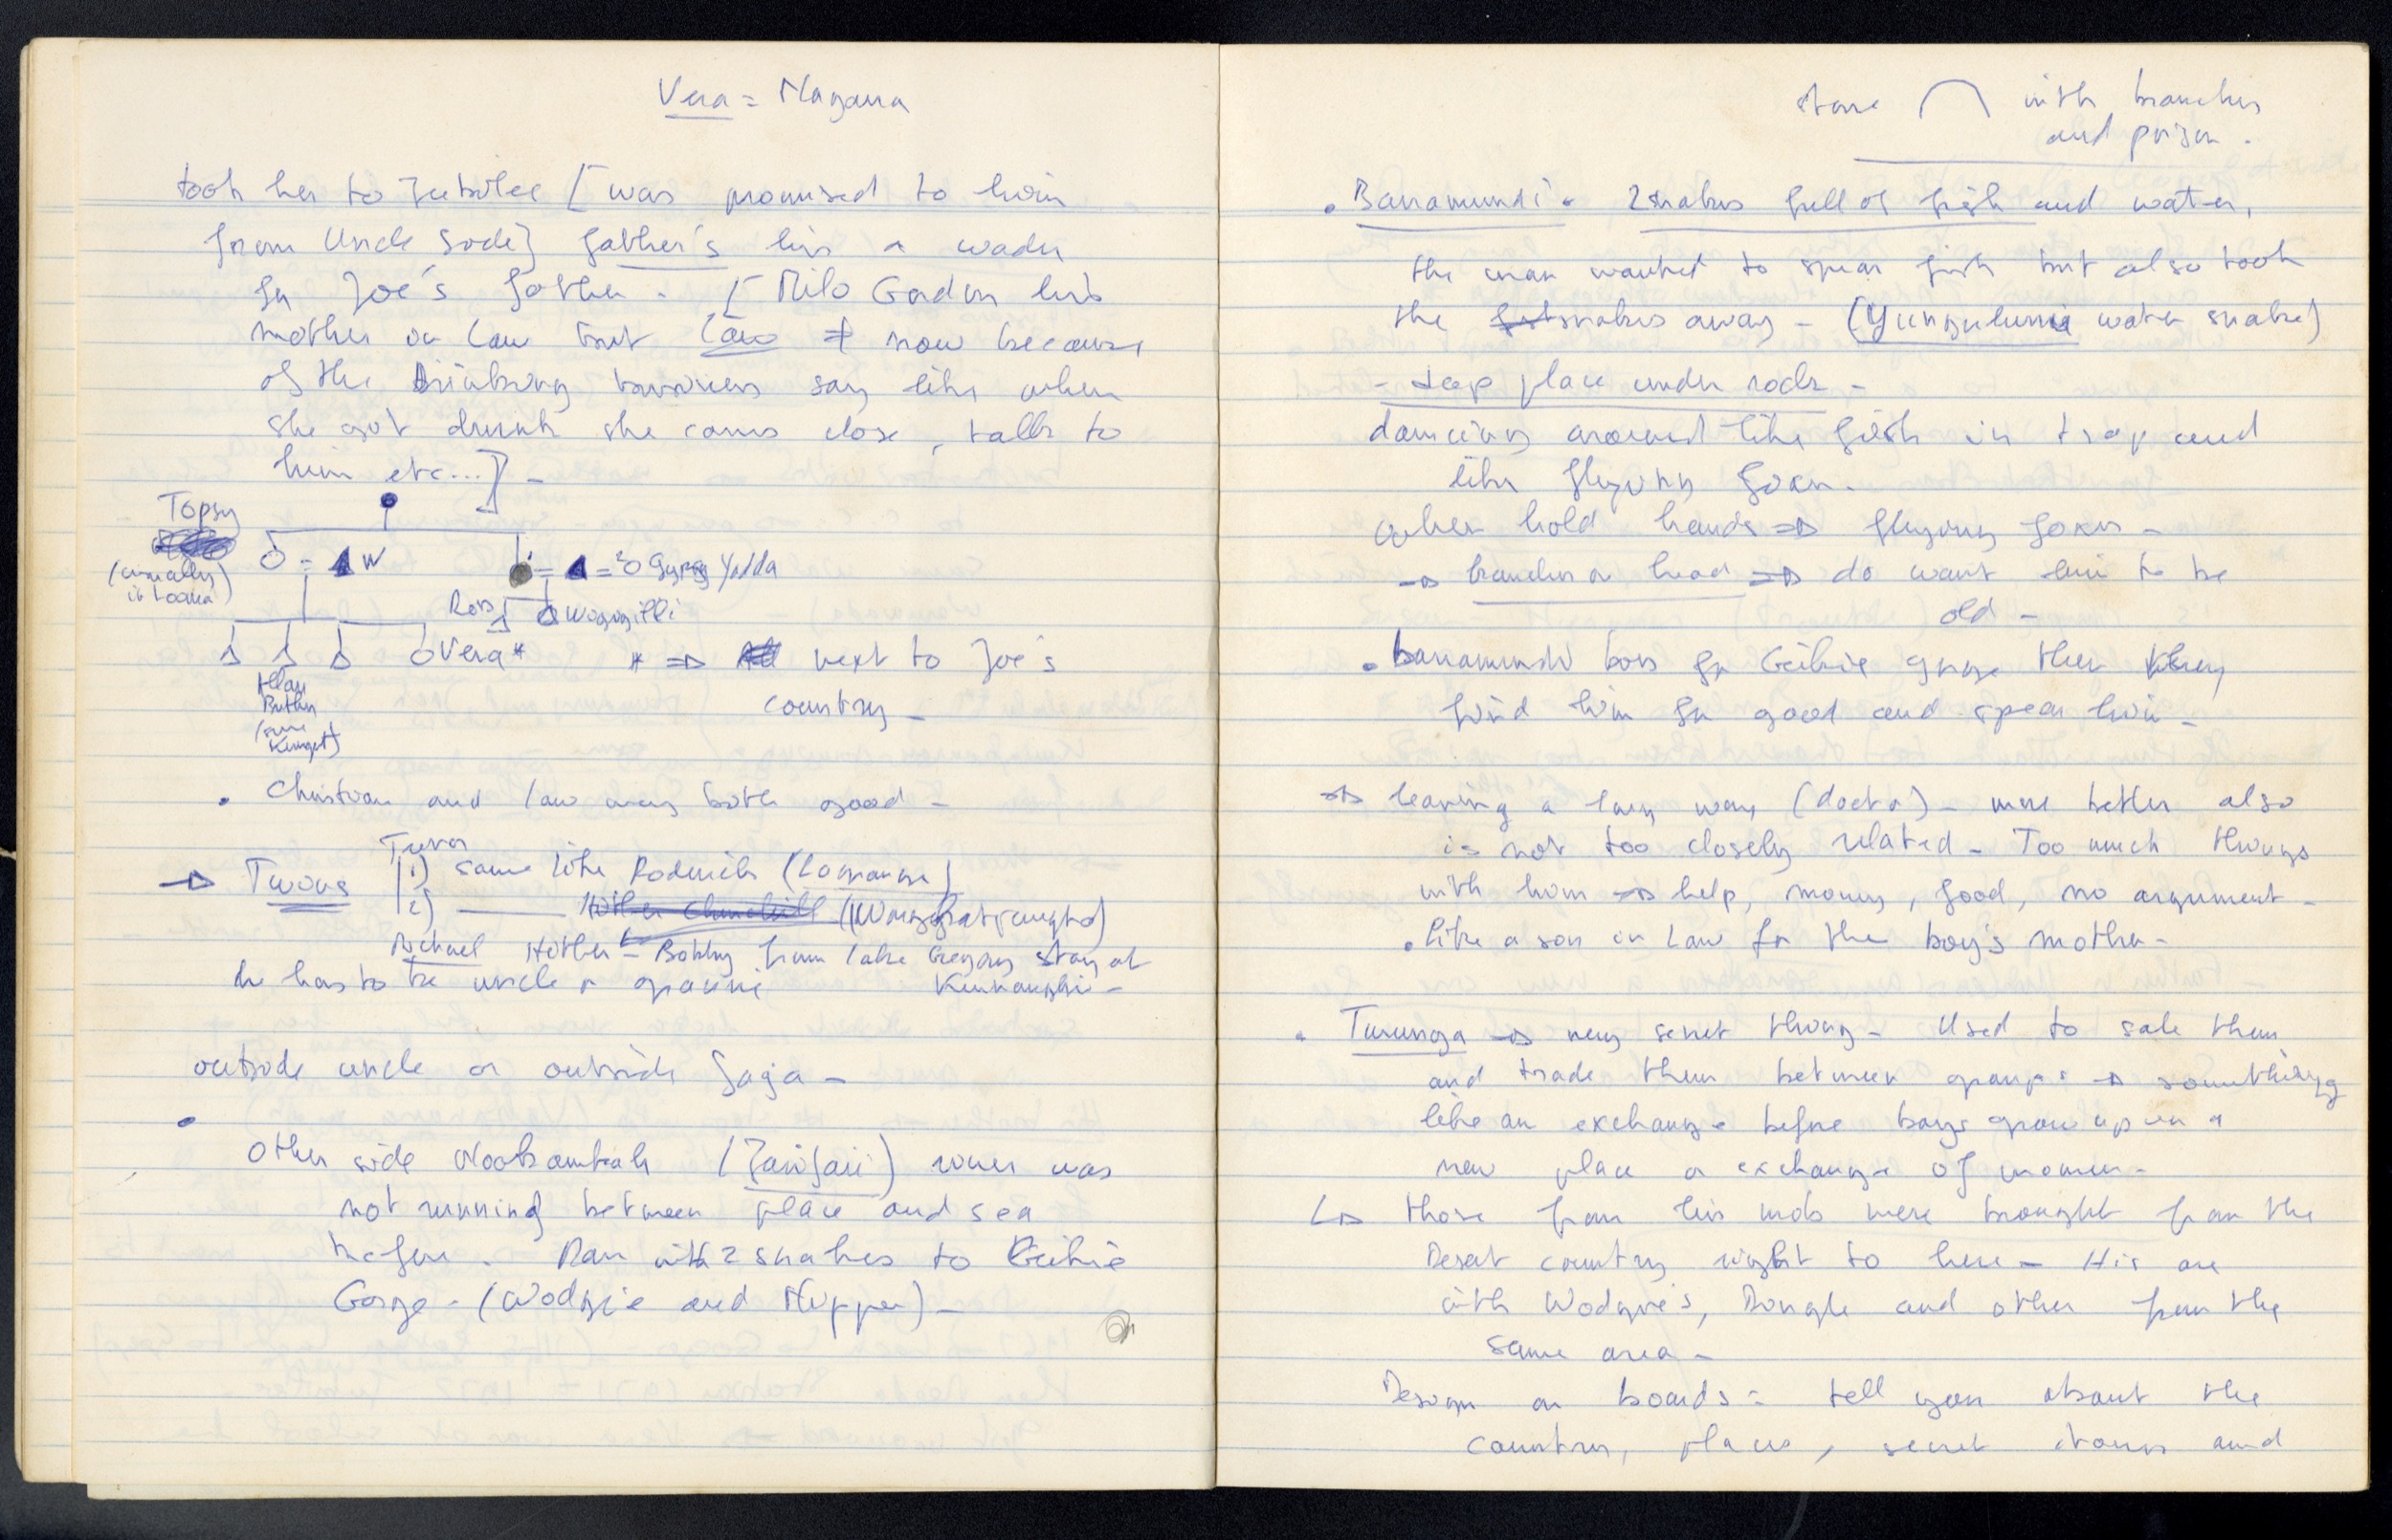 Vera = Nagarra
took her to Jubilee [was promised to him
from Uncle side] father's his a wadu
for Joe's father. [Milo Gordon his
mother in law but law ≠ now because
of the drinking business say like when
she got drunk she comes close, talks to
him etc...] -
Topsy
(usually
is Looma)
O = W
= = 2 O Gypsy Yadda
Ross
Vera*
* => next to Joe's
country -
Alan
Butler
(same
• Christian and law way both good -
Trevor
-> Twins 1) same like Roderick
2)
Michael Hitler = Bobby from Lake Gregory stay at
he has to be uncle or grannie
outside uncle or outside Jaja -
•
Other side Nookanbah river was
not running between place and sea
before. Ran with 2 snakes to Geikie
Gorge - (Wodgie and Nipper) -
stone ⌒ with branches
and poison.
• Barramundi • 2 snakes full of fish and water,
the man wanted to spear fish but also took
the snakes away - (Yungulumu water snake)
- deep place under rocks -
dancing around like fish in trap and
like flying foxes.
when hold hands => flying foxes -
-> branches on head => do want him to be
old -
• barramundi boss for Geikie gorge then they
find him for good and spear him -
=> leaving a long way (doctor) - more better also
is not too closely related - Too much things
with him -> help, money, food, no argument -
• like a son in law for the boy's mother -
• Turunga -> very secret thing - Used to sale them
and trade them between groups -> something
like an exchange before boys grow up in a
new place or exchange of women -
↳ those from his mob were brought from the
Desert country right to here - His are
with Wodgie's, Dongle and other from the
same area -
Design on boards = tell you about the
country, places, secret stories and